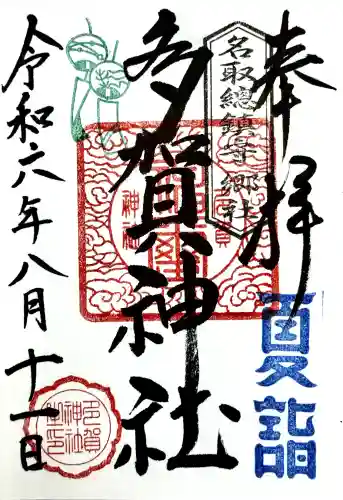 奉拝
名取總鎮守郷社
多賀神社
令和六年八月十一日
夏詣